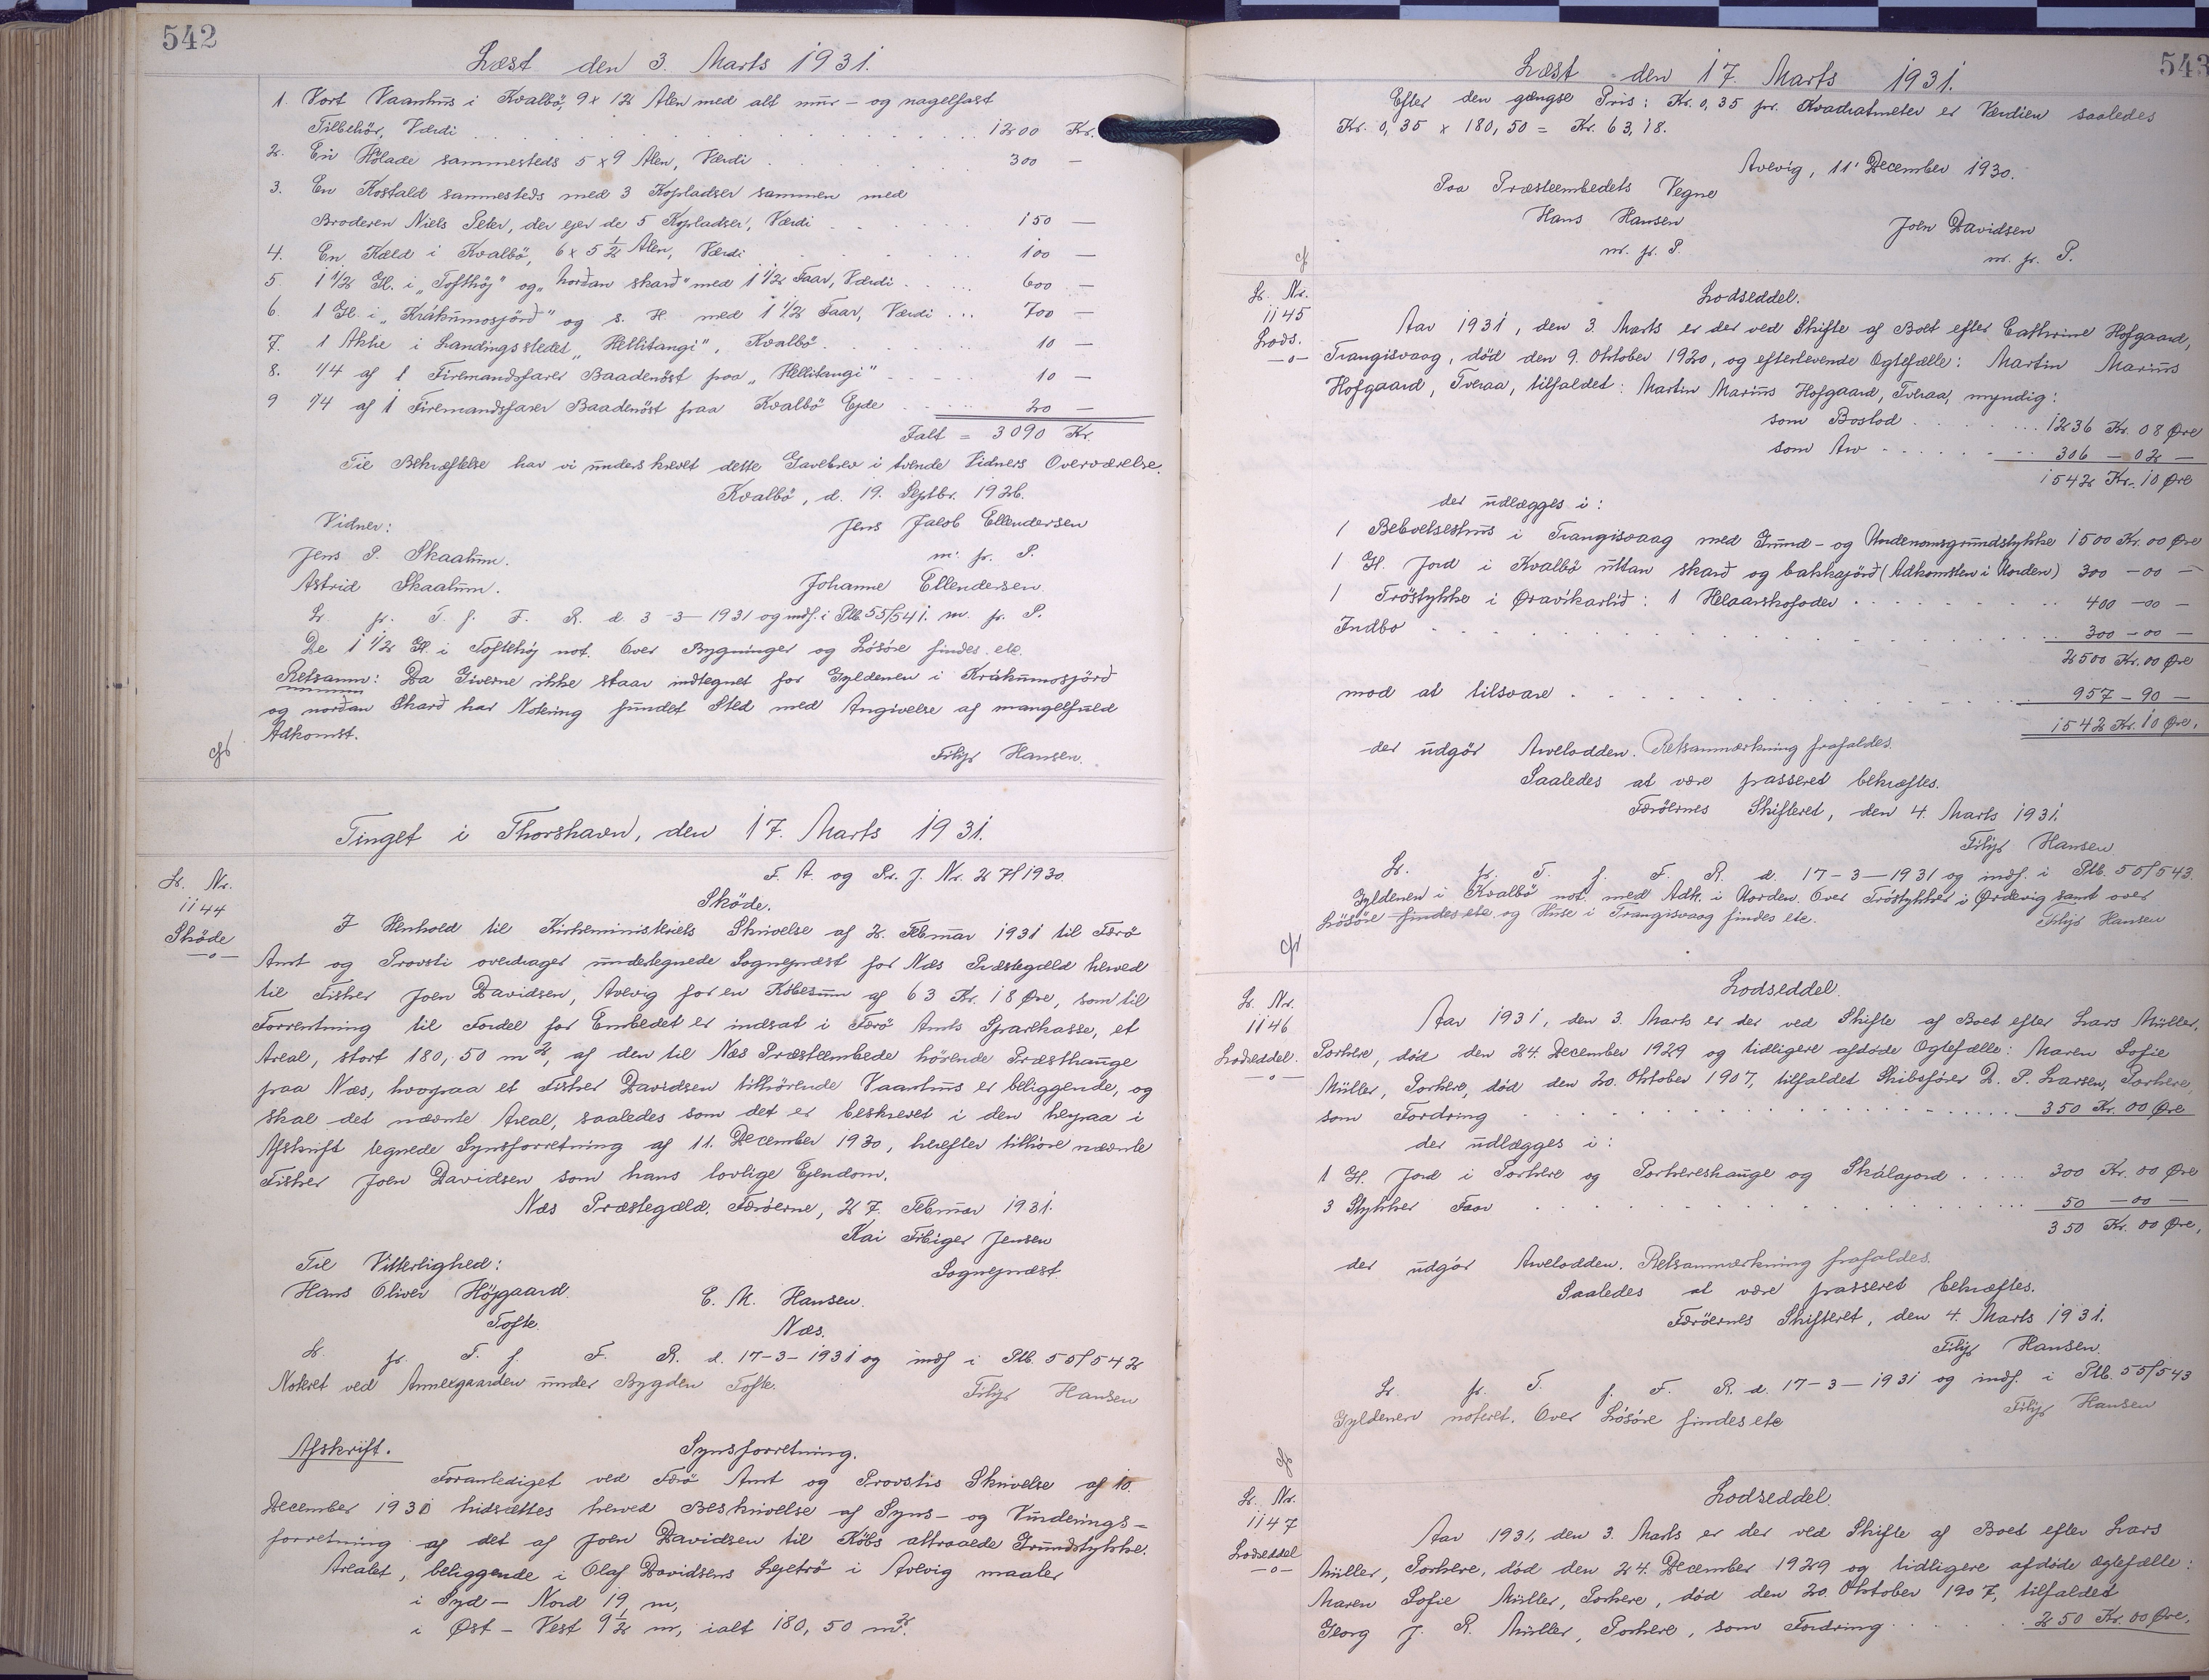 542
Læst den 3. Marts 1931.
1. Vort Vaanhus i Kvalbö, 9 x 12 Alen med alt mur- og nagelfast
Tilbehör, Værdi . . . 1200 Kr.
2. En Hölade sammesteds 5 x 9 Alen, Værdi . . . 300 —
3. En Kostald sammesteds med 3 Kopladser sammen med
Broderen Niels Peter, der ejer de 5 Kopladser, Værdi . . . 150 —
4. En Kæld i Kvalbö, 6 x 5 1/2 Alen, Værdi . . . 100 —
5. 1 1/2 Gl. i „Tofthöj" og „norðan skarð" med 1 1/2 Faar, Værdi . . . 600 —
6. 1 Gl. i „Krákumosjörð" og s. H. med 1 1/2 Faar, Værdi . . . 700 —
7. 1 Akke i Landingsstedet „Hellitangi", Kvalbö . . . 10 —
8. 1/4 af 1 Firemandsfarer Baadenöst paa „Hellitangi" . . . 10 —
9 1/4 af 1 Firemandsfarer Baadenöst paa Kvalbö Ejde . . . 20 —
Ialt = 3090 Kr.
Til Bekræftelse har vi underskrevet dette Gavebrev i tvende Vidners Overværelse.
Kvalbö, d. 19. Septbr. 1926.
Vidner: Jens Jacob Ellendersen
Jens P. Skaalum. m. fr. P.
Astrid Skaalum. Johanne Ellendersen
Lr. fr. T. f. F. R. d. 3-3-1931 og indf. i Ptb. 55/541. m. fr. P.
De 1 1/2 Gl. i Tofthöj not. Over Bygninger og Lösöre findes ete.
Retsanm: Da Giverne ikke staar indtegnet for Gyldenen i Krákumosjörð
og norðan Skarð har Notering fundet Sted med Angivelse af mangelfuld
Adkomst.
Filip Hansen.
Tinget i Thorshavn, den 17. Marts 1931.
Lr. Nr.
1144
Sköde
—o—
F. A. og Pr. J. Nr. 27/1930.
Sköde.
I Henhold til Kirkeministeriets Skrivelse af 2. Februar 1931 til Færö
Amt og Provsti overdrager undertegnede Sognepræst for Næs Præstegæld herved
til Fisker Joen Davidsen, Ævevig for en Købesum af 63 Kr. 18 Øre, som til
Forrentning til Fordel for Embedet er indsat i Færö Amts Sparekasse, et
Areal, stort 180,50 m2, af den til Næs Præsteembede hørende Præsthauge
paa Næs, hvorpaa et Fisker Davidsen tilhörende Vaanhus er beliggende, og
skal det nævnte Areal, saaledes som det er beskrevet i den herpaa i
Afskrift tegnede Synsforretning af 11. December 1930, herefter tilhöre nævnte
Fisker Joen Davidsen som hans lovlige Ejendom.
Næs Præstegæld. Færöerne, 27. Februar 1931.
Kai Fibiger Jensen
Til Vitterlighed: Sognepræst
Hans Oliver Höjgaard. E. M. Hansen.
Tofte. Næs.
Lr. fr. T. f. F. R. d. 17-3-1931 og indf i Ptb. 55/542
Noteret ved Annexgaarden under Bygden Tofte. Filip Hansen
Afskrift. Synsforretning.
Foranlediget ved Færö Amt og Provstis Skrivelse af 10.
December 1930 hidsættes herved Beskrivelse af Syns- og Vurderings-
forretning af det af Joen Davidsen til Köbs attraaede Grundstykke.
Arealet, beliggende i Olaf Davidsens Lejetrö i Ævevig maaler
i Syd - Nord 19 m,
i Øst - Vest 9 1/2 m, ialt 180,50 m2.
543
Læst den 17. Marts 1931.
Efter den gængse Pris: Kr. 0,35 pr. Kvadratmeter er Værdien saaledes
Kr. 0,35 x 180,50 = Kr. 63,18.
Ævevig, 11' December 1930.
Paa Præsteembedets Vegne
Hans Hansen Joen Davidsen
m. fr. P. m. fr. P.
Lr. Nr.
1145
Lods.
—o—
Lodseddel.
Aar 1931, den 3. Marts er der ved Skifte af Boet efter Cathrine Hofgaard,
Trangisvaag, død den 9. Oktober 1920, og efterlevende Ægtefælle: Martin Marius
Hofgaard, Tveraa, tilfaldet: Martin Marius Hofgaard, Tveraa, myndig:
som Boslod . . . 1236 Kr. 08 Øre
som Arv . . . 306 — 02 —
1542 Kr. 10 Øre
der udlægges i:
1 Beboelseshus i Trangisvaag med Grund- og Undenomsgrundstykke 1500 Kr. 00 Øre
1 Gl. Jord i Kvalbö uttan skarð og bakkajörð (Adkomsten i Orden) 300 — 00 —
1 Tröstykke i Øravikarlið: 1 Helaarskofoder . . . 400 — 00 —
Indbo . . . 300 — 00 —
2500 Kr. 00 Øre
mod at tilsvare . . . 957 — 90 —
1542 Kr. 10 Øre.
der udgör Arvelodden. Retsanmærkning frafaldes.
Saaledes at være passeret bekræftes.
Færöernes Skifteret, den 4. Marts 1931.
Filip Hansen
Lr. fr. T. f. F. R. d. 17-3-1931 og indf. i Ptb. 55/543.
Gyldenen i Kvalbö not. med Adk. i Orden. Over Tröstykket i Ørdevig samt over
Lösöre findes ete og Huse i Trangisvaag findes ete. Filip Hansen
Lr. Nr.
1146
Lodseddel.
—o—
Lodseddel.
Aar 1931, den 3. Marts er der ved Skifte af Boet efter Lars Müller,
Porkere, død den 24. December 1929 og tidligere afdøde Ægtefælle: Maren Sofie
Müller, Porkere, død den 20. Oktober 1907, tilfaldet Skibsfører D. P. Larsen, Porkere,
som Fordring . . . 350 Kr. 00 Øre
der udlægges i:
1 Gl. Jord i Porkere og Porkereshauge og Skálajord . . . 300 Kr. 00 Øre
3 Stykker Faar . . . 50 — 00 —
350 Kr. 00 Øre.
der udgör Arvelodden. Retsanmærkning frafaldes.
Saaledes at være passeret bekræftes.
Færöernes Skifteret, den 4. Marts 1931.
Filip Hansen.
Lr. fr. T. f. F. R. d. 17-3-1931 og indf. i Ptb. 55/543
Gyldenen noteret. Over Lösöre findes ete Filip Hansen
Lr. Nr.
1147
Lodseddel
—o—
Lodseddel.
Aar 1931, den 3. Marts er der ved Skifte af Boet efter Lars
Müller, Porkere, død den 24. December 1929 og tidligere afdøde Ægtefælle:
Maren Sofie Müller, Porkere, død den 20. Oktober 1907, tilfaldet
Georg J. R. Müller, Porkere, som Fordring . . . 250 Kr. 00 Øre.